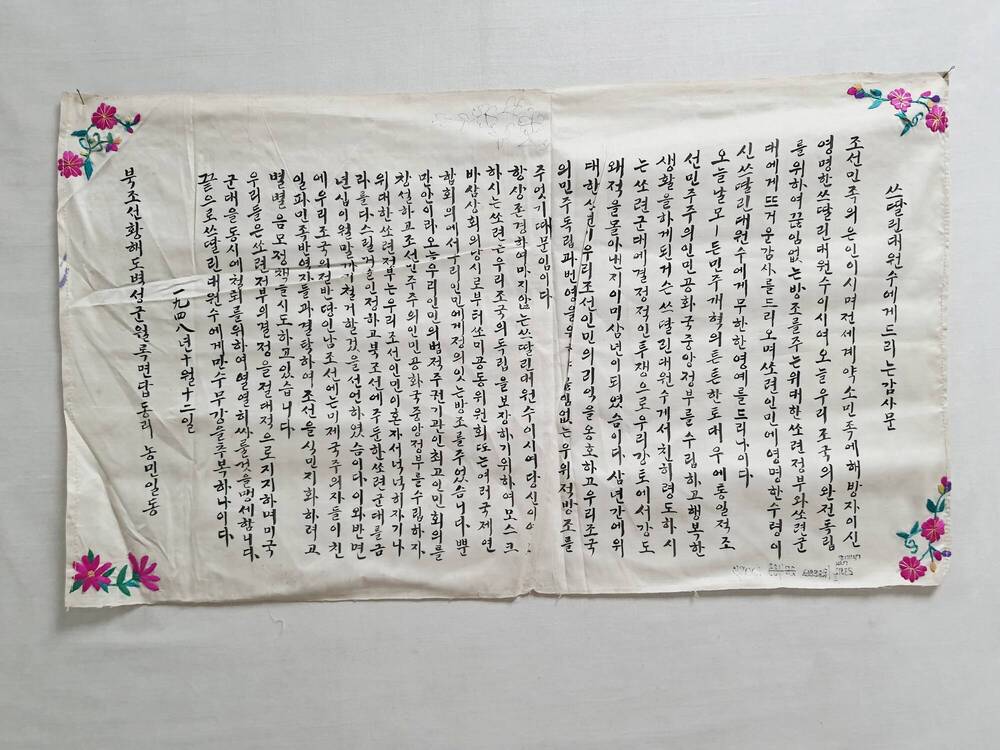 쓰딸린대원수에게드리는감사문
조선민족의은인이시며전세계약소민족에해방자이신
영명한쓰딸린대원수이시여오늘우리조국의완전독립
를위하여끊임없는방조를주는위대한쏘련정부와쏘련군
대에게뜨거운감사를드리오며쏘련인민에영명한수령이
신쓰딸린대원수에게무한한영예를드리나이다
오늘날모ー든민주개혁의튼튼한토대우에통일적조
선민주주의인민공화국중앙정부를수립하고행복한
생활을하게된거슨쓰딸린대원수게서친히령도하시
는쏘련군대에결정적인투쟁으로우리강토에서강도
왜적을몰아낸지이미삼년이되였슴이다삼년간에위
대한쏘련이우리조선인민의리익을옹호하고우리조국
의민주독립과번영을위하야끊임없는우위적방조를
주엇기때문임이다
항상존경하여마지안는쓰딸린대원수이시여당신이
하시는쏘련은우리조국의독립을보장하기위하여모스크
바삼상회의당시로부터쏘미공동위원회또는여러국제연
합회의에서우리인민에게정의잇는방조를주었습니다뿐
만안이라오늘우리인민의법적주권기관인최고인민회의를
창설하고조선민주주의인민공화국중앙정부를수립하자
위대한쏘련정부는우리조선인민이혼자서넉넉히자기나
라를다스릴거을인정하고북조선에주둔한쏘련군대를금
년십이월말까지철거할것을선언하였슴이다이와반면
에우리조국의절반땅인남조선에는미제국주의자들이친
일파민족반역자들과결탁하여조선을식민지화하려고
별별음모정책을시도하고있습니다
우리들은쏘련정부의결정을절대적으로지지하며미국
군대을동시에철퇴를위하여열열히싸를것을맹세합니다
끝으로쓰딸린대원수에게만수무강을축복하나이다
一九四八年十월十二일
북조선황해도벽성군월록면답동리 농민일동